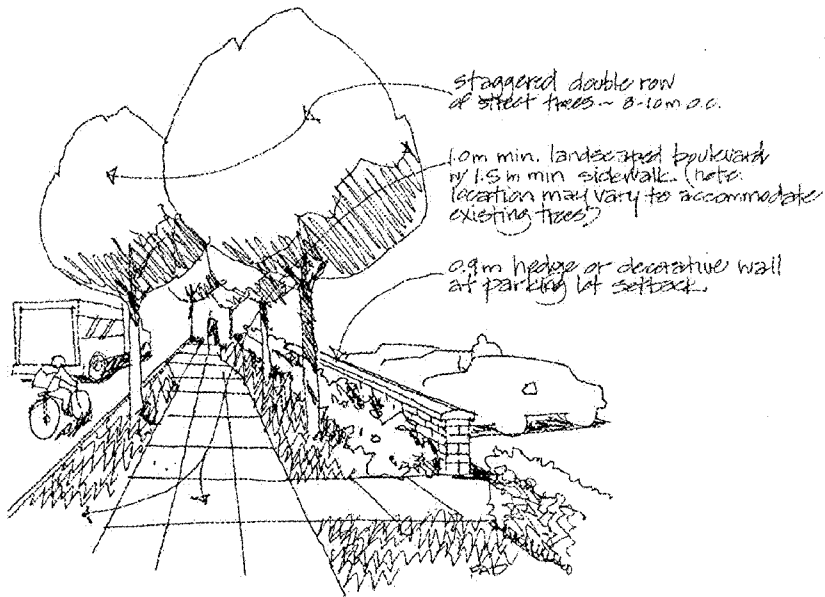 staggered double row
of street trees ~ 8-10m o.c.
1.0m min. landscaped boulevard
w/ 1.5m min sidewalk. (note:
location may vary to accommodate
existing trees)
0.9m hedge or decorative wall
at parking lot setback.